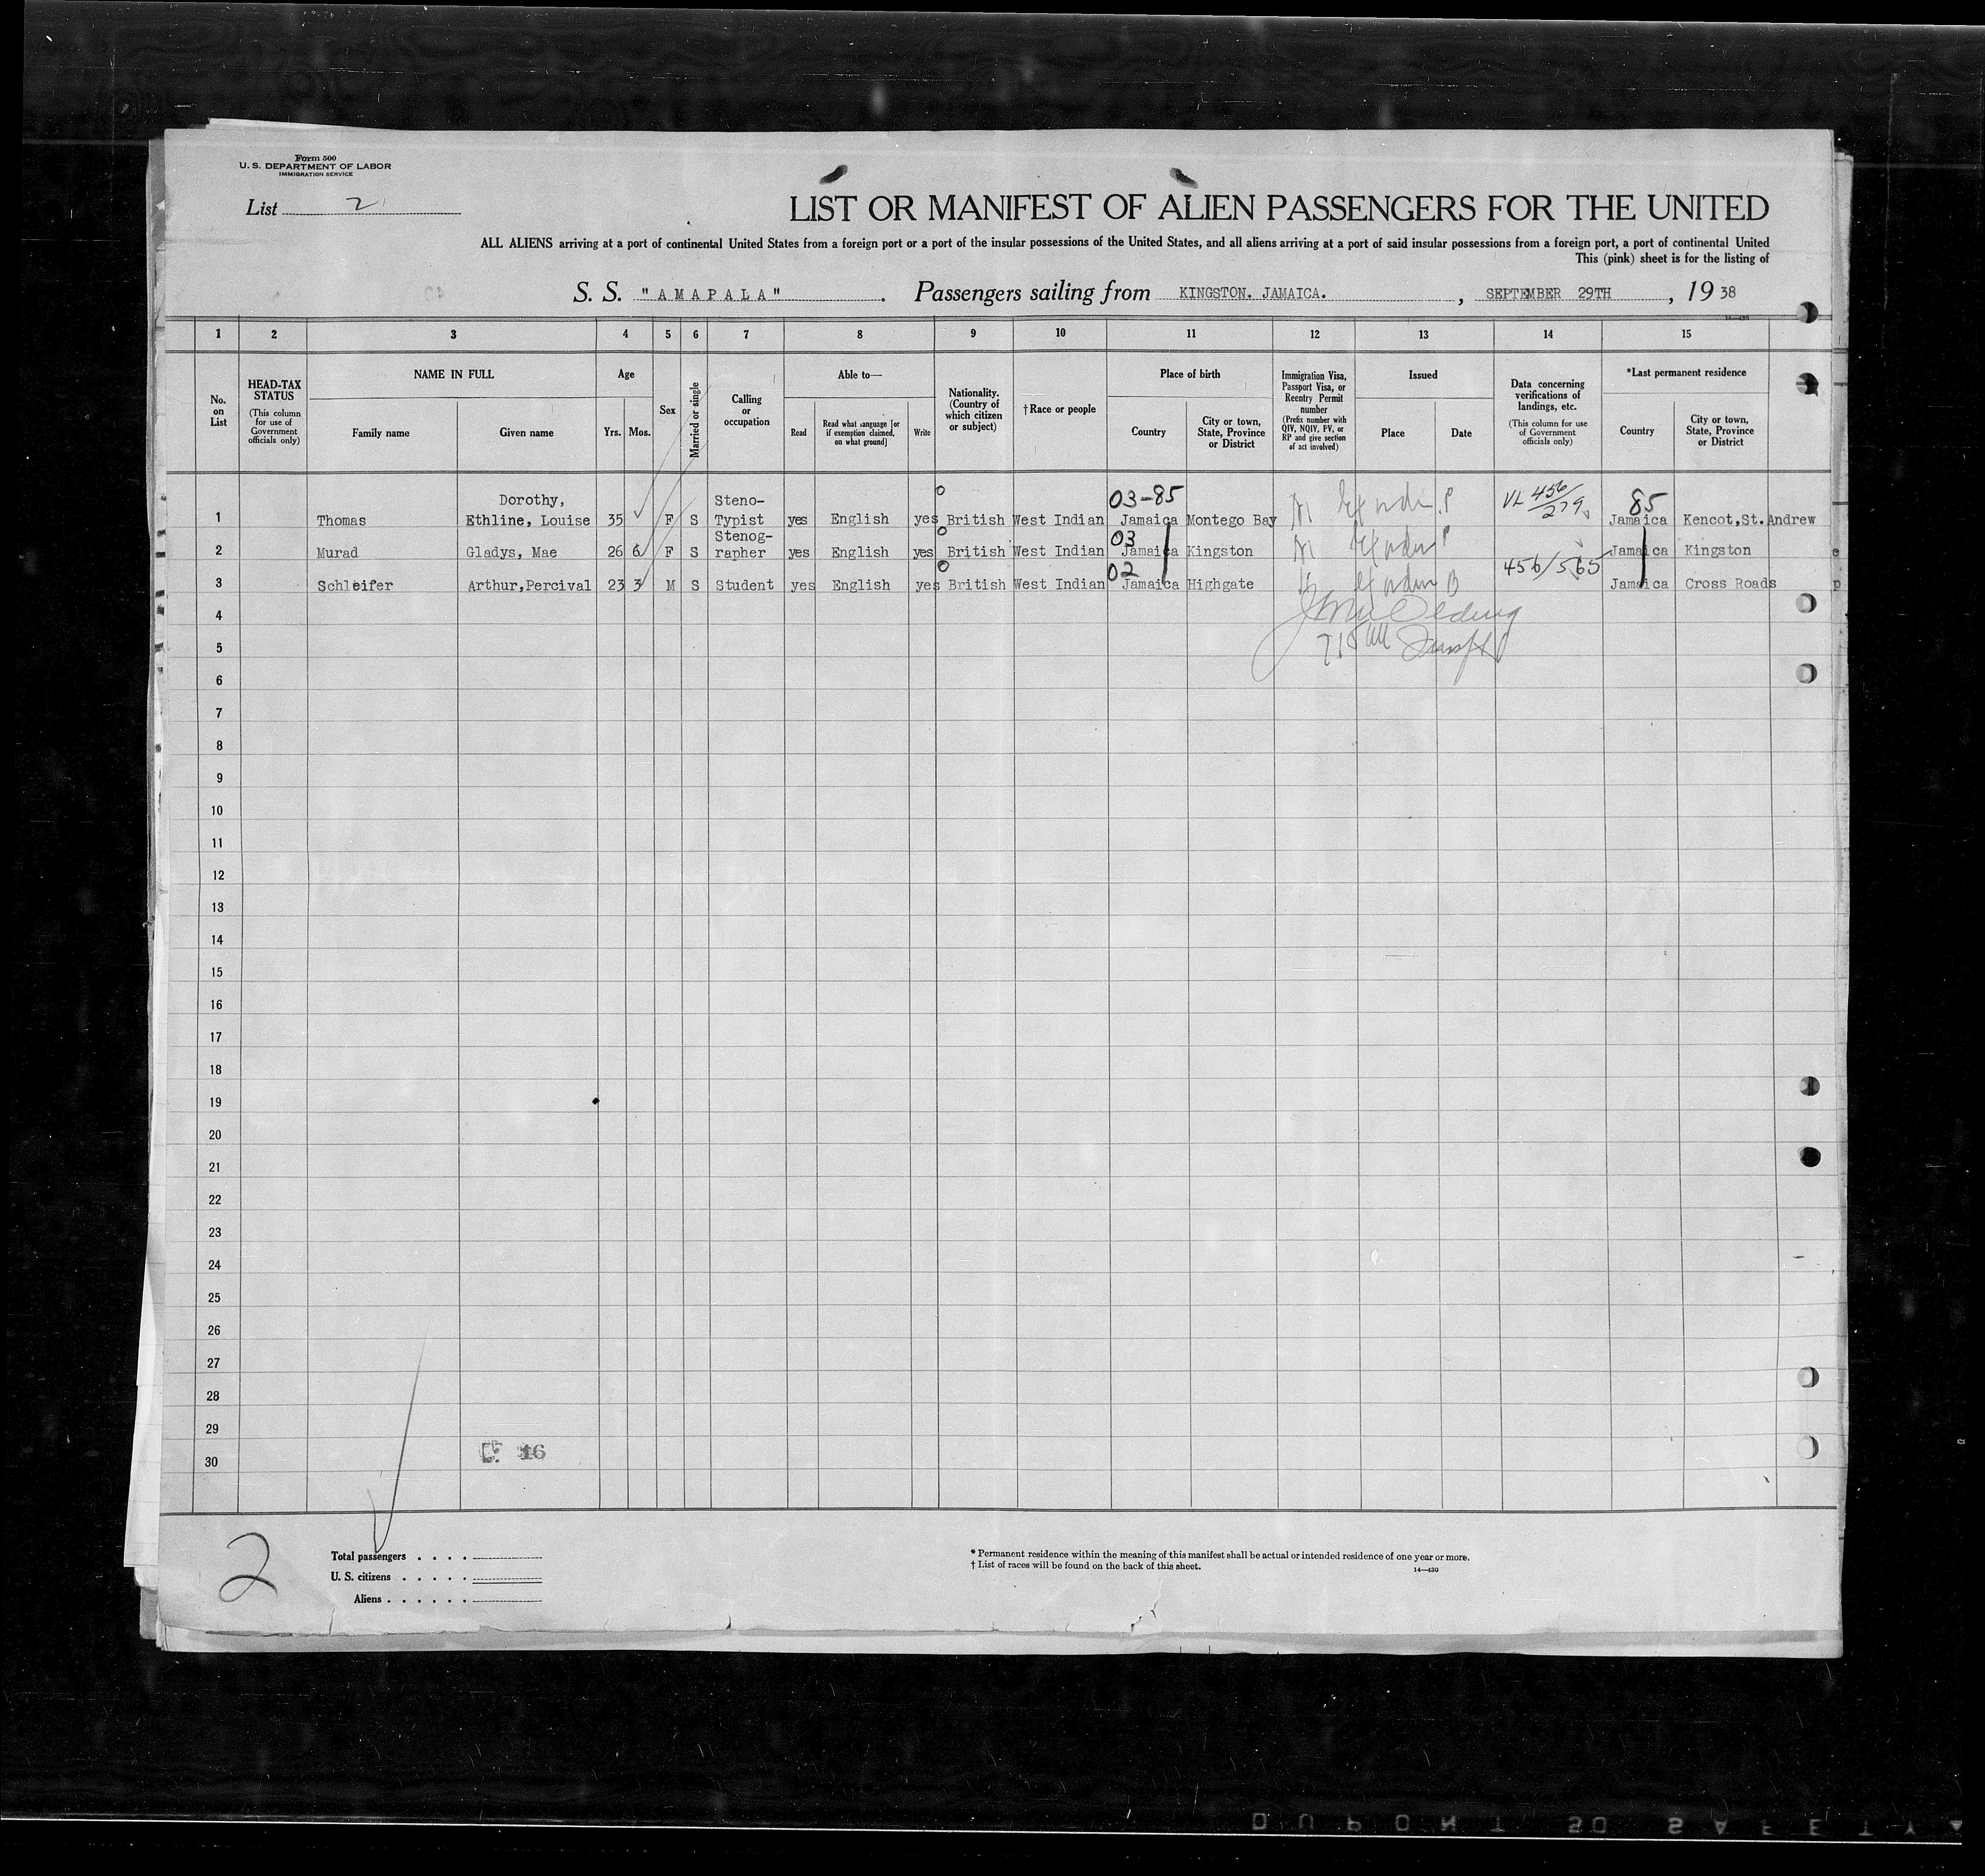 Form 500
U. S. DEPARTMENT OF LABOR
IMMIGRATION SERVICE
List 2
LIST OR MANIFEST OF ALIEN PASSENGERS FOR THE UNITED
ALL ALIENS arriving at a port of continental United States from a foreign port or a port of the insular possessions of the United States, and all aliens arriving at a port of said insular possessions from a foreign port, a port of continental United
This (pink) sheet is for the listing of
S. S. "AMAPALA". Passengers sailing from KINGSTON. JAMAICA. , SEPTEMBER 29TH , 19 38
14—430
1 2 3 4 5 6 7 8 9 10 11 12 13 14 15
No. on List
HEAD-TAX STATUS (This column for use of Government officials only)
NAME IN FULL
Family name
Given name
Age
Yrs. Mos.
Sex
Married or single
Calling or occupation
Able to—
Read
Read what language [or if exemption claimed, on what ground]
Write
Nationality. (Country of which citizen or subject)
†Race or people
Place of birth
Country
City or town, State, Province or District
Immigration Visa, Passport Visa, or Reentry Permit number (Prefix number with QIV, NQIV, PV, or RP and give section of act involved)
Issued
Place
Date
Data concerning verifications of landings, etc. (This column for use of Government officials only)
*Last permanent residence
Country
City or town, State, Province or District
03-85 VL 456/279 85
1 Thomas Dorothy, Ethline, Louise 35 F S Steno-Typist yes English yes British West Indian Jamaica Montego Bay Jamaica Kencot,St.Andrew
03
2 Murad Gladys, Mae 26 6 F S Stenog-rapher yes English yes British West Indian Jamaica Kingston Jamaica Kingston
02 456/565
3 Schleifer Arthur,Percival 23 3 M S Student yes English yes British West Indian Jamaica Highgate Jamaica Cross Roads
4
5
6
7
8
9
10
11
12
13
14
15
16
17
18
19
20
21
22
23
24
25
26
27
28
29
30
16
2
Total passengers . . . .
U. S. citizens . . . . .
Aliens . . . . . .
* Permanent residence within the meaning of this manifest shall be actual or intended residence of one year or more.
† List of races will be found on the back of this sheet.
14—430
DUPONT 50 SAFETY